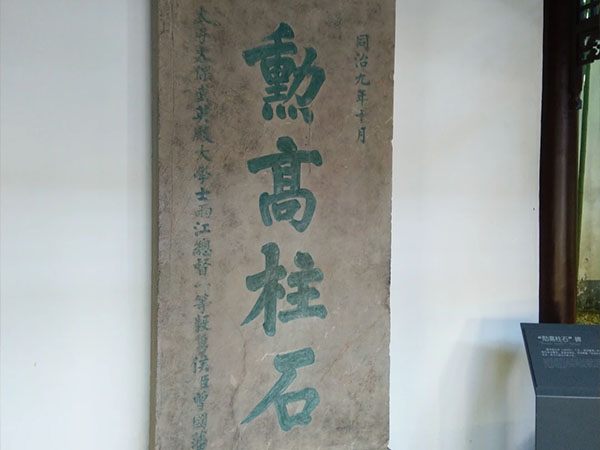 同治九年十月
勲髙柱石
太子太保武英殿大學士兩江總督一等毅勇侯臣曾國藩
“勋高柱石”碑